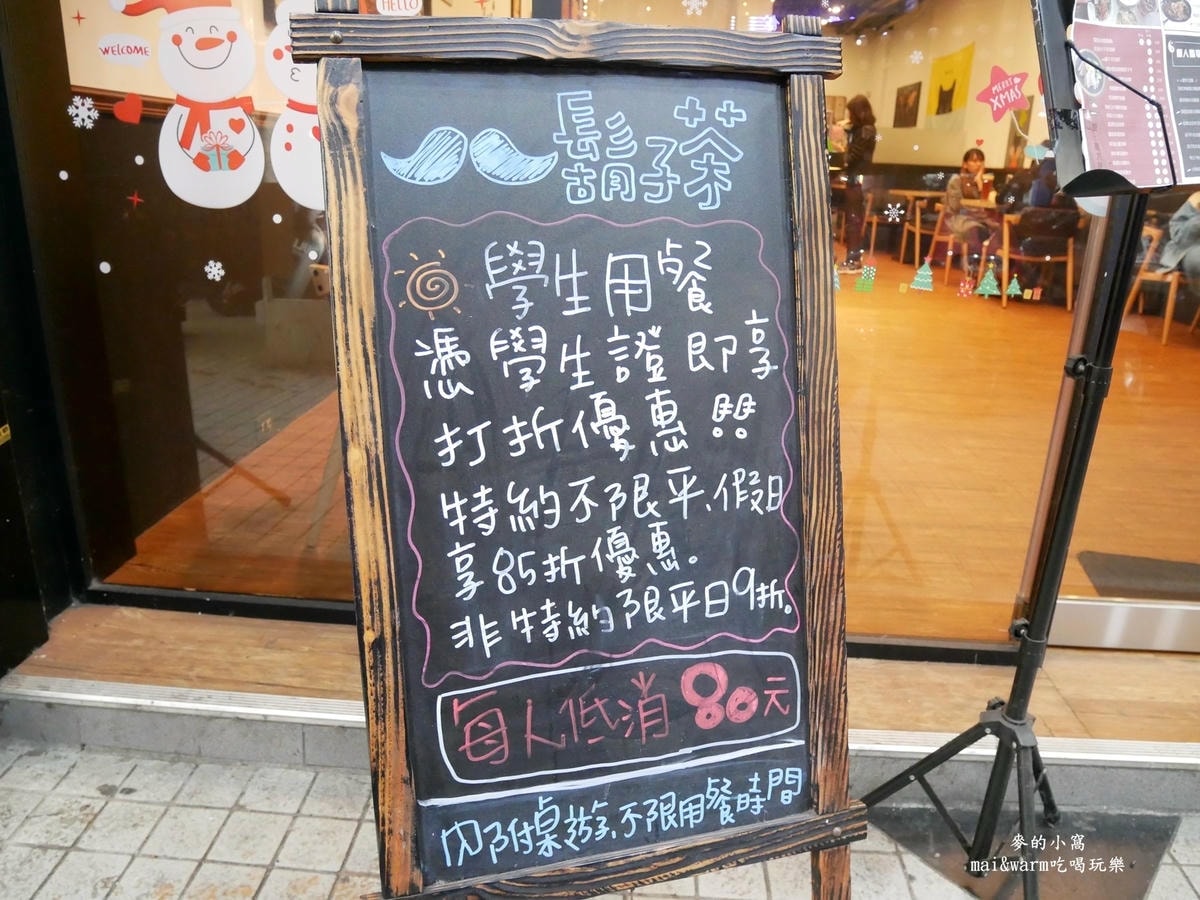 HELLO
WELCOME
MERRY
XMAS
鬍子茶
學生用餐
憑學生證即享
打折優惠!!
特約不限平、假日
享85折優惠。
非特約限平日9折。
每人低消80元
內附桌遊、不限用餐時間
麥的小窩
mai&warm吃喝玩樂